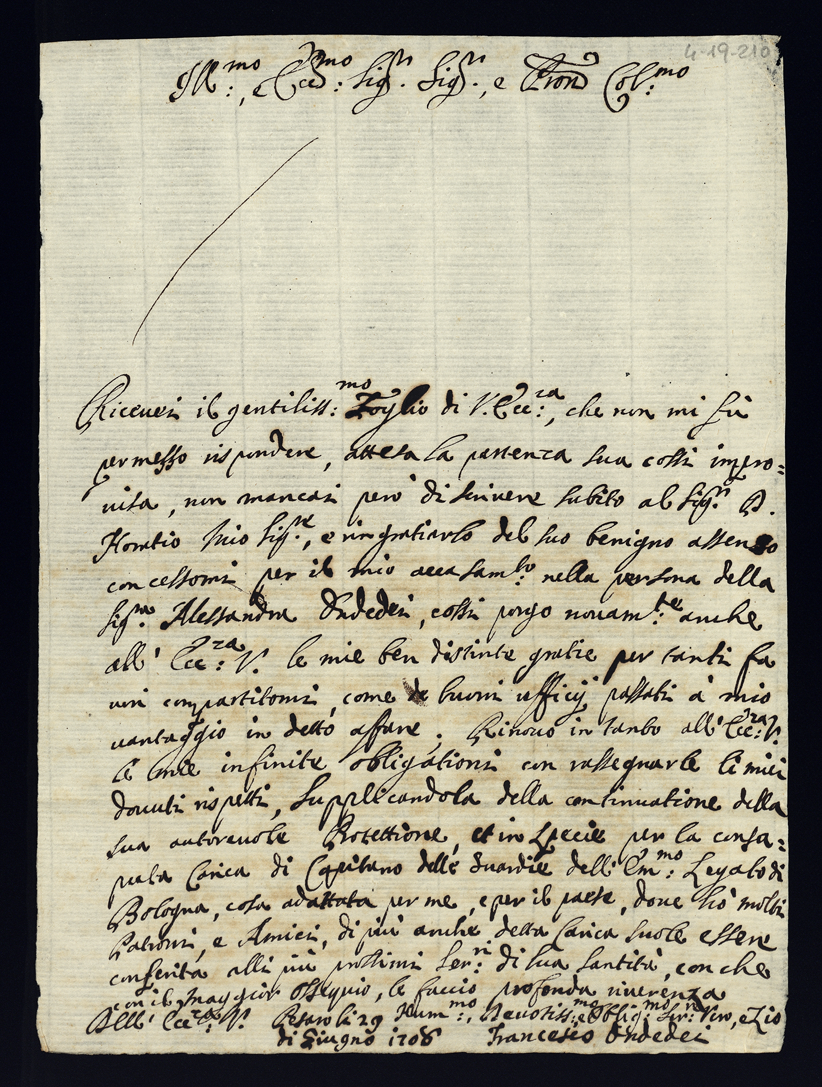 4-19-210
Ill:mo, e Ecc:mo Sig.r Sig.r, e Pron Col:mo
Riceuei il gentiliss:mo Foglio di V. Ecc:za, che non mi fù
permesso rispondere, attesa la partenza sua cossi impro=
uisa, non mancai però di scriuere subito al Sig.r D.
Horatio mio Sig.re, e ringratiarlo del suo benigno assenso
concessomi per il mio accasam:to nella persona della
Sig.ra Alessandra Ondedei, cossi porgo nouam:te anche
all' Ecc:za V. le mie ben distinte gratie per tanti fa
uori compartitomi, come buoni ufficij passati à mio
uantaggio in detto affare. Rinouo in tanto all' Ecc:za V.
le mie infinite obligationi con rassegnarle li miei
douuti rispetti, supplicandola della continuatione della
sua autoreuole Protettione, et in specie per la consa=
puta Carica di Capitano delle Guardie dell' Em:mo Legato di
Bologna, cosa adattata per me, e per il paese, doue hò molti
Patroni, e Amici, di più anche detta Carica suole essere
conferita alli più prossimi Ser:ri di sua Santità, con che
con il maggior ossequio, le faccio profonda riuerenza
Dell' Ecc:za V. Pesaro li 29 Hum:mo, Deuotiss:mo e Oblig:mo Ser:re Vero, e Zio
di Giugno 1706 Francesco Ondedei